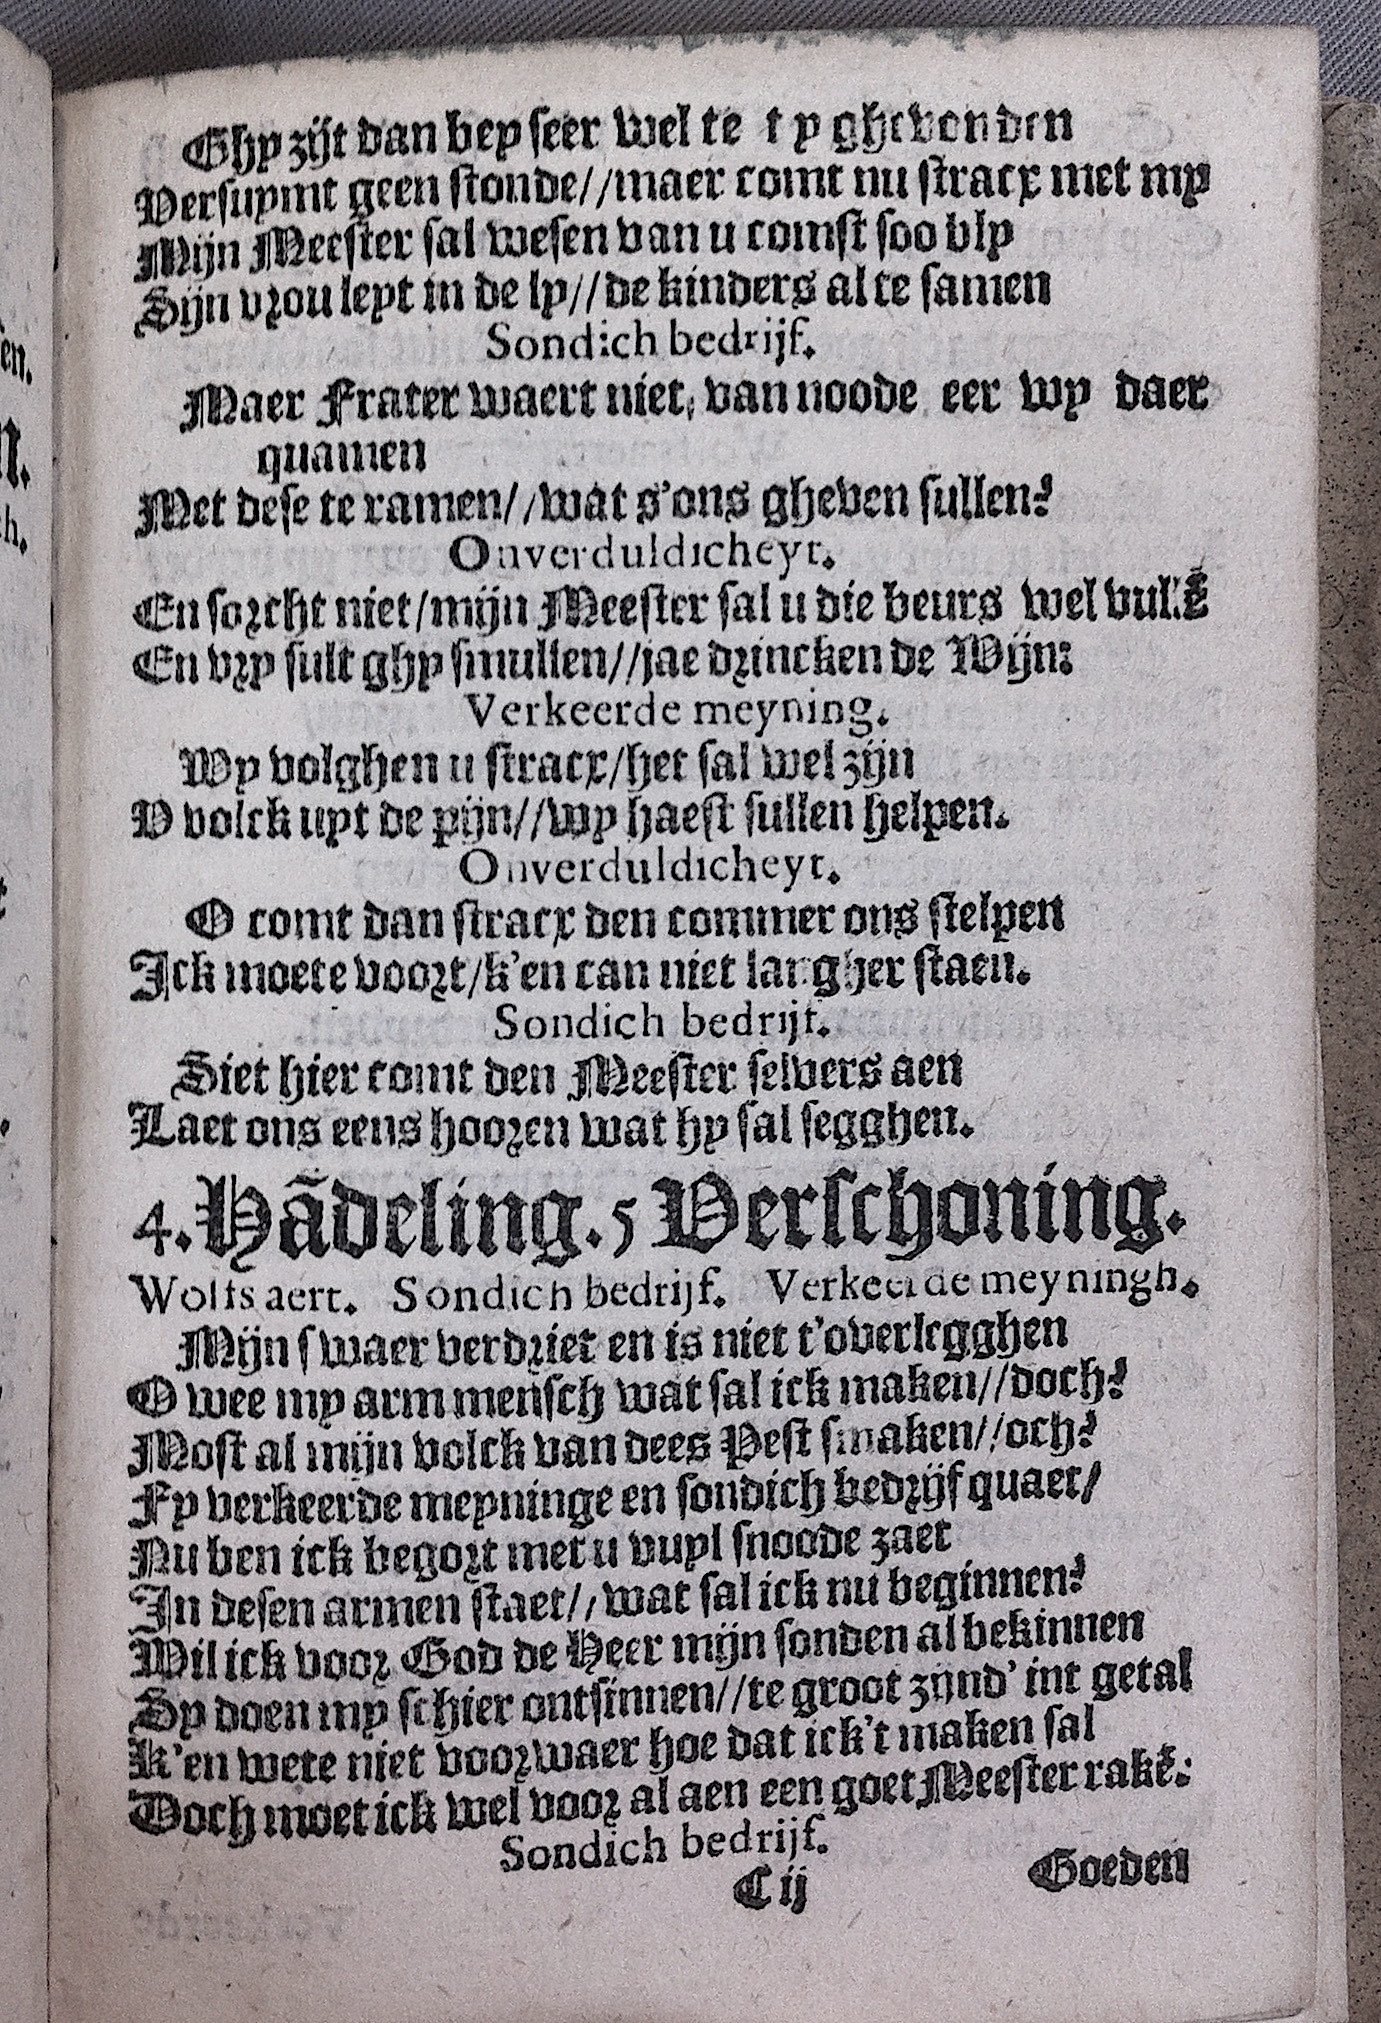 Ghy zijt van bey seer wel te ty ghevonden
Versuymt geen stonde//maer comt nu stracx met my
Mijn Meester sal wesen van u comst soo bly
Sijn vrou leyt in de ly//de kinders al te samen
Sondich bedrijf.
Maer Frater waert niet, van noode eer wy daer
quamen
Met dese te ramen//wat s'ons gheven sullen?
Onverduldicheyt.
En sorcht niet/mijn Meester sal u die beurs wel vullẽ
En vry sult ghy smullen//jae drincken de Wijn:
Verkeerde meyning.
Wy volghen u stracx/het sal wel zijn
V volck uyt de pijn//wy haest sullen helpen.
Onverduldicheyt.
O comt dan stracx den commer ons stelpen
Ick moete voort/k'en can niet langher staen.
Sondich bedrijf.
Siet hier comt den Meester selvers aen
Laet ons eens hooren wat hy sal segghen.
4. Hãdeling. 5 Verschoning.
Wolfsaert. Sondich bedrijf. Verkeerde meyningh.
Mijn swaer verdriet en is niet t'overlegghen
O wee my arm mensch wat sal ick maken//doch?
Most al mijn volck van dees Pest smaken//och?
Fy verkeerde meyninge en sondich bedrijf quaet/
Nu ben ick begort met u vuyl snoode zaet
In desen armen staet//wat sal ick nu beginnen?
Wil ick voor God de Heer mijn sonden al bekinnen
Sy doen my schier ontsinnen//te groot zijnd' int getal
K'en wete niet voorwaer hoe dat ick't maken sal
Doch moet ick wel voor al aen een goet Meester rakẽ:
Sondich bedrijf.
C ij
Goeden